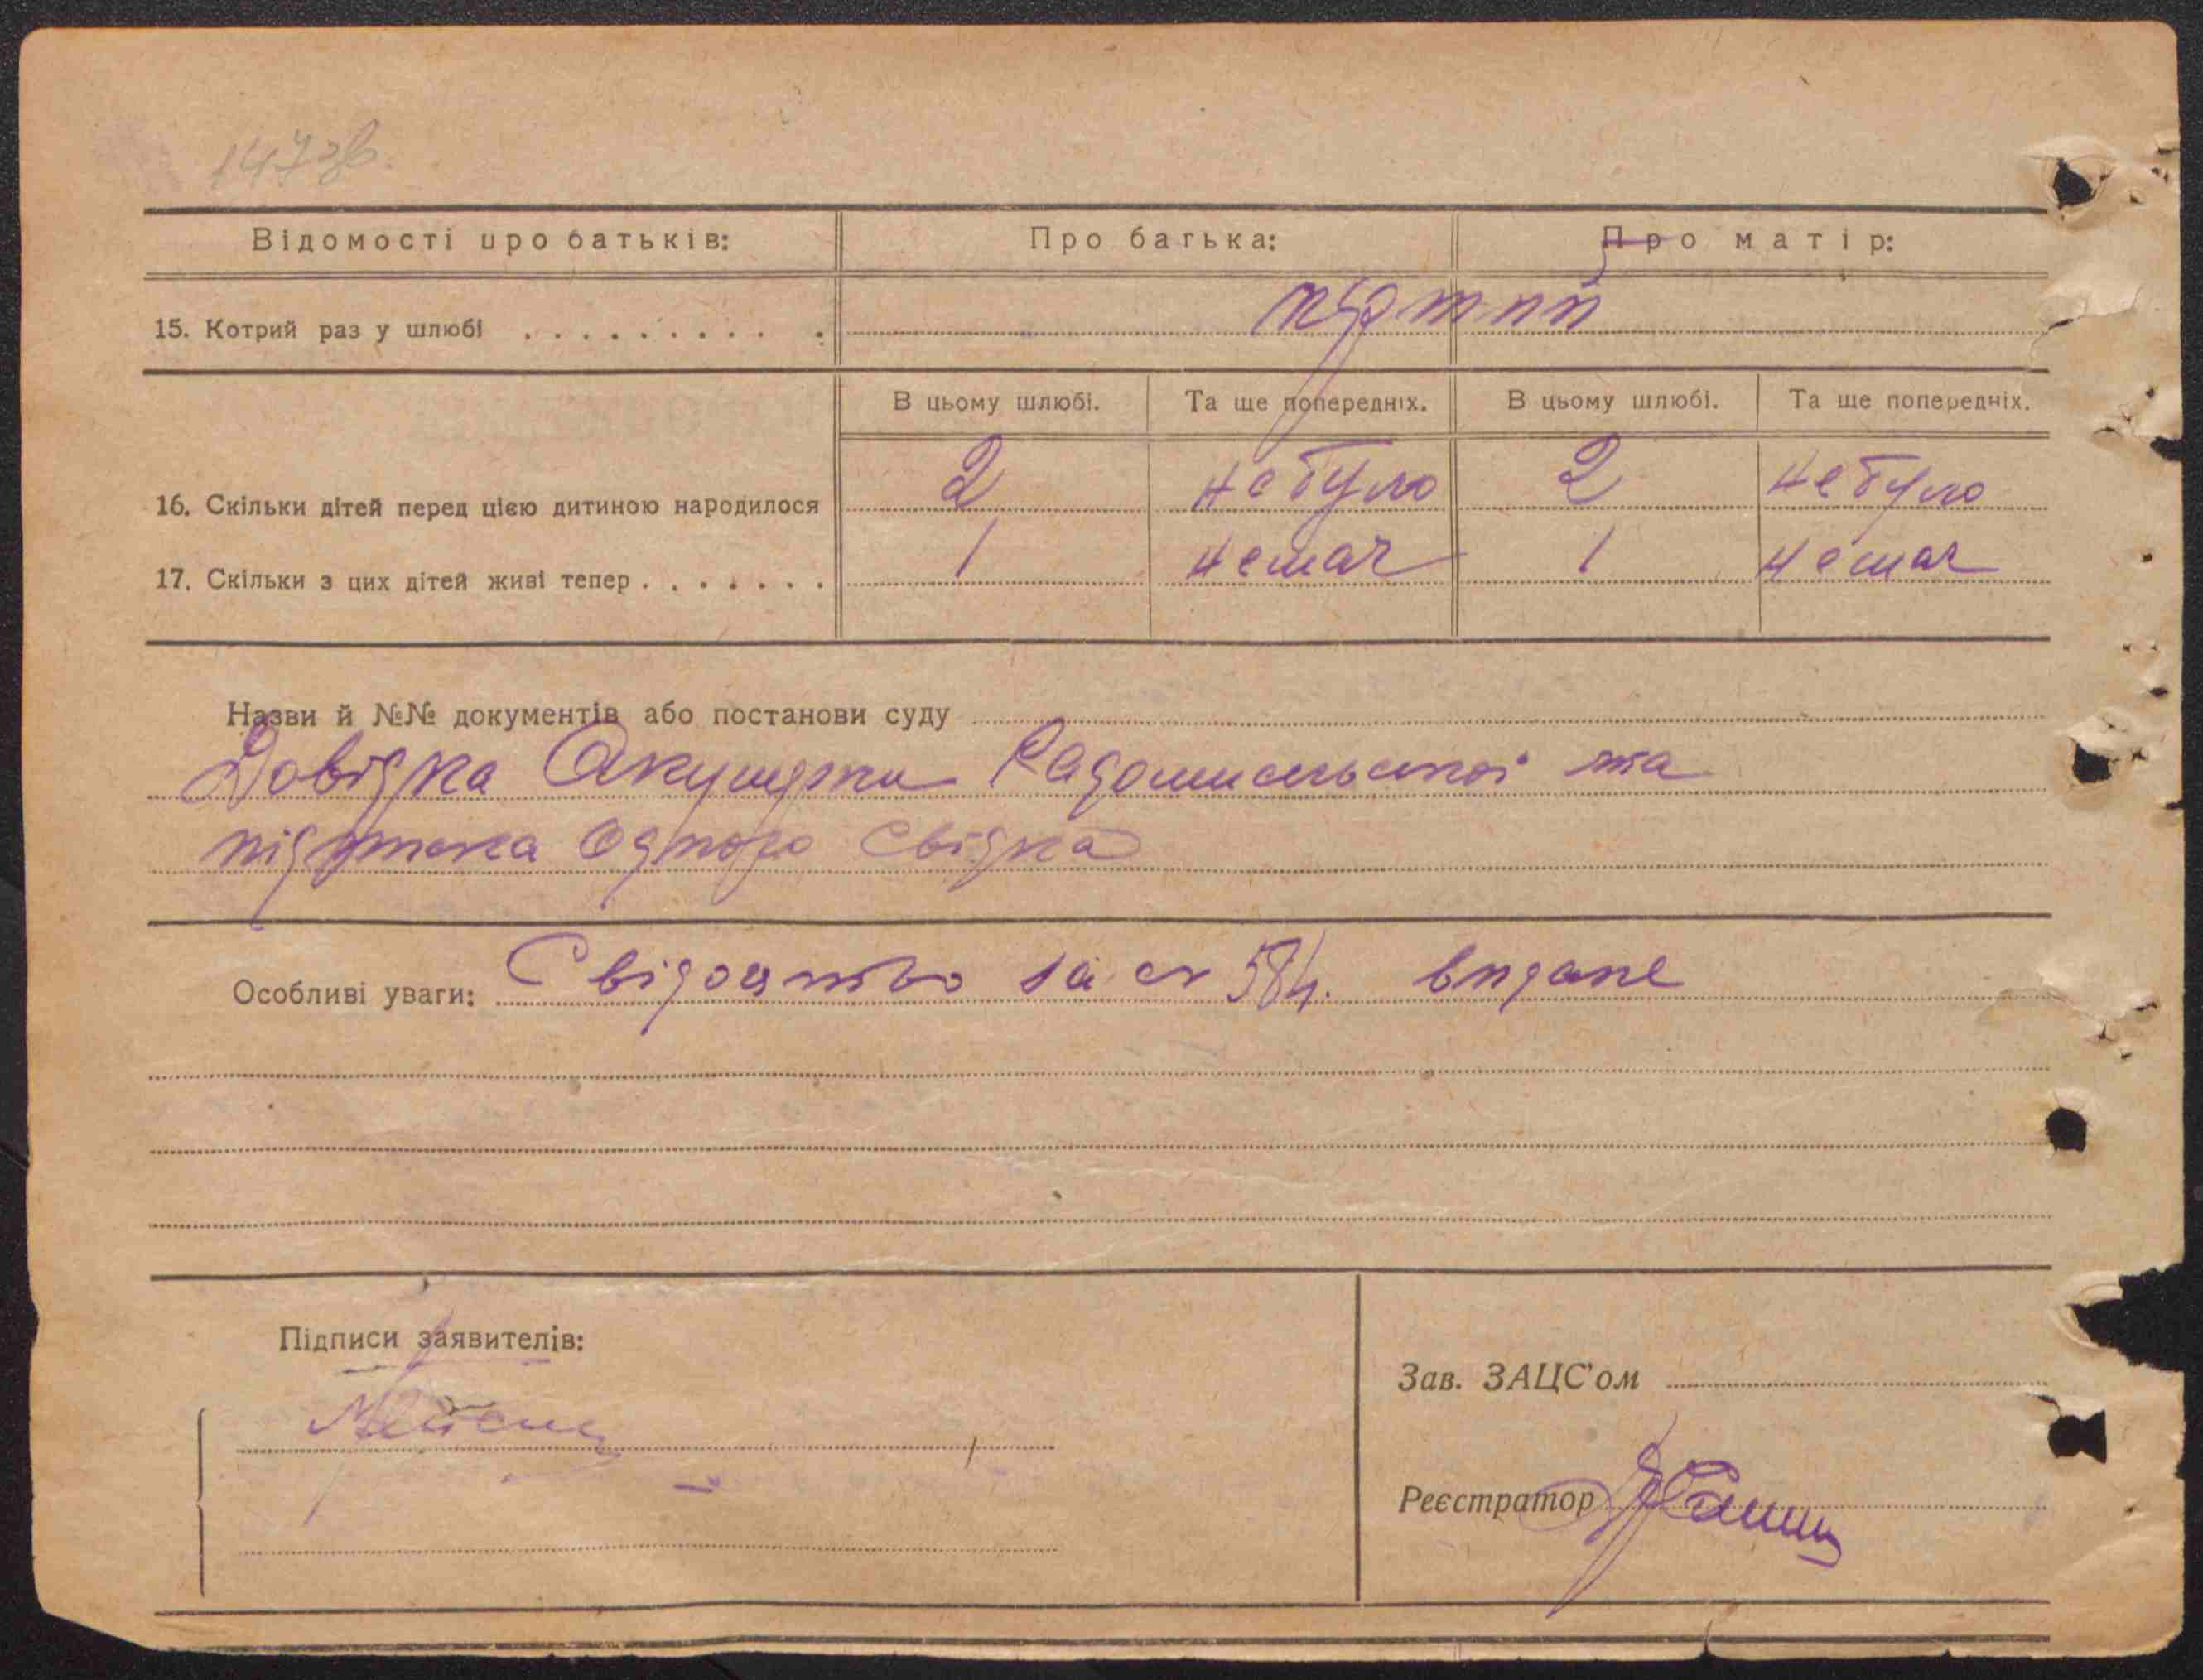 147зв.
Відомості про батьків: Про батька: Про матір:
15. Котрий раз у шлюбі . . . . . . . . . . .
В цьому шлюбі. Та ще попередніх. В цьому шлюбі. Та ще попередніх.
16. Скільки дітей перед цією дитиною народилося 2 не було 2 не було
17. Скільки з цих дітей живі тепер . . . . . . . 1 немає 1 немає
Назви й №№ документів або постанови суду
Довідка Акушерки Радомисльської та
одного свідка
Особливі уваги: Свідоцтво за № 584. видане
Підписи заявителів:
Зав. ЗАЦС'ом
Реєстратор